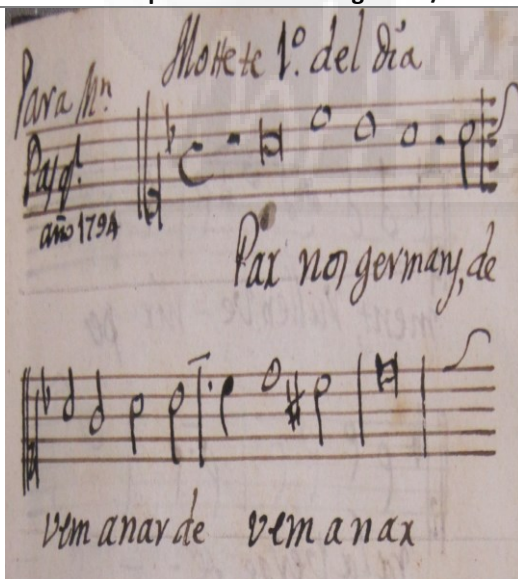 Mottete 1º. del dia
Para Mn.
Pasql.
año 1794
Pax nos germans, de
vem anar de vem anar